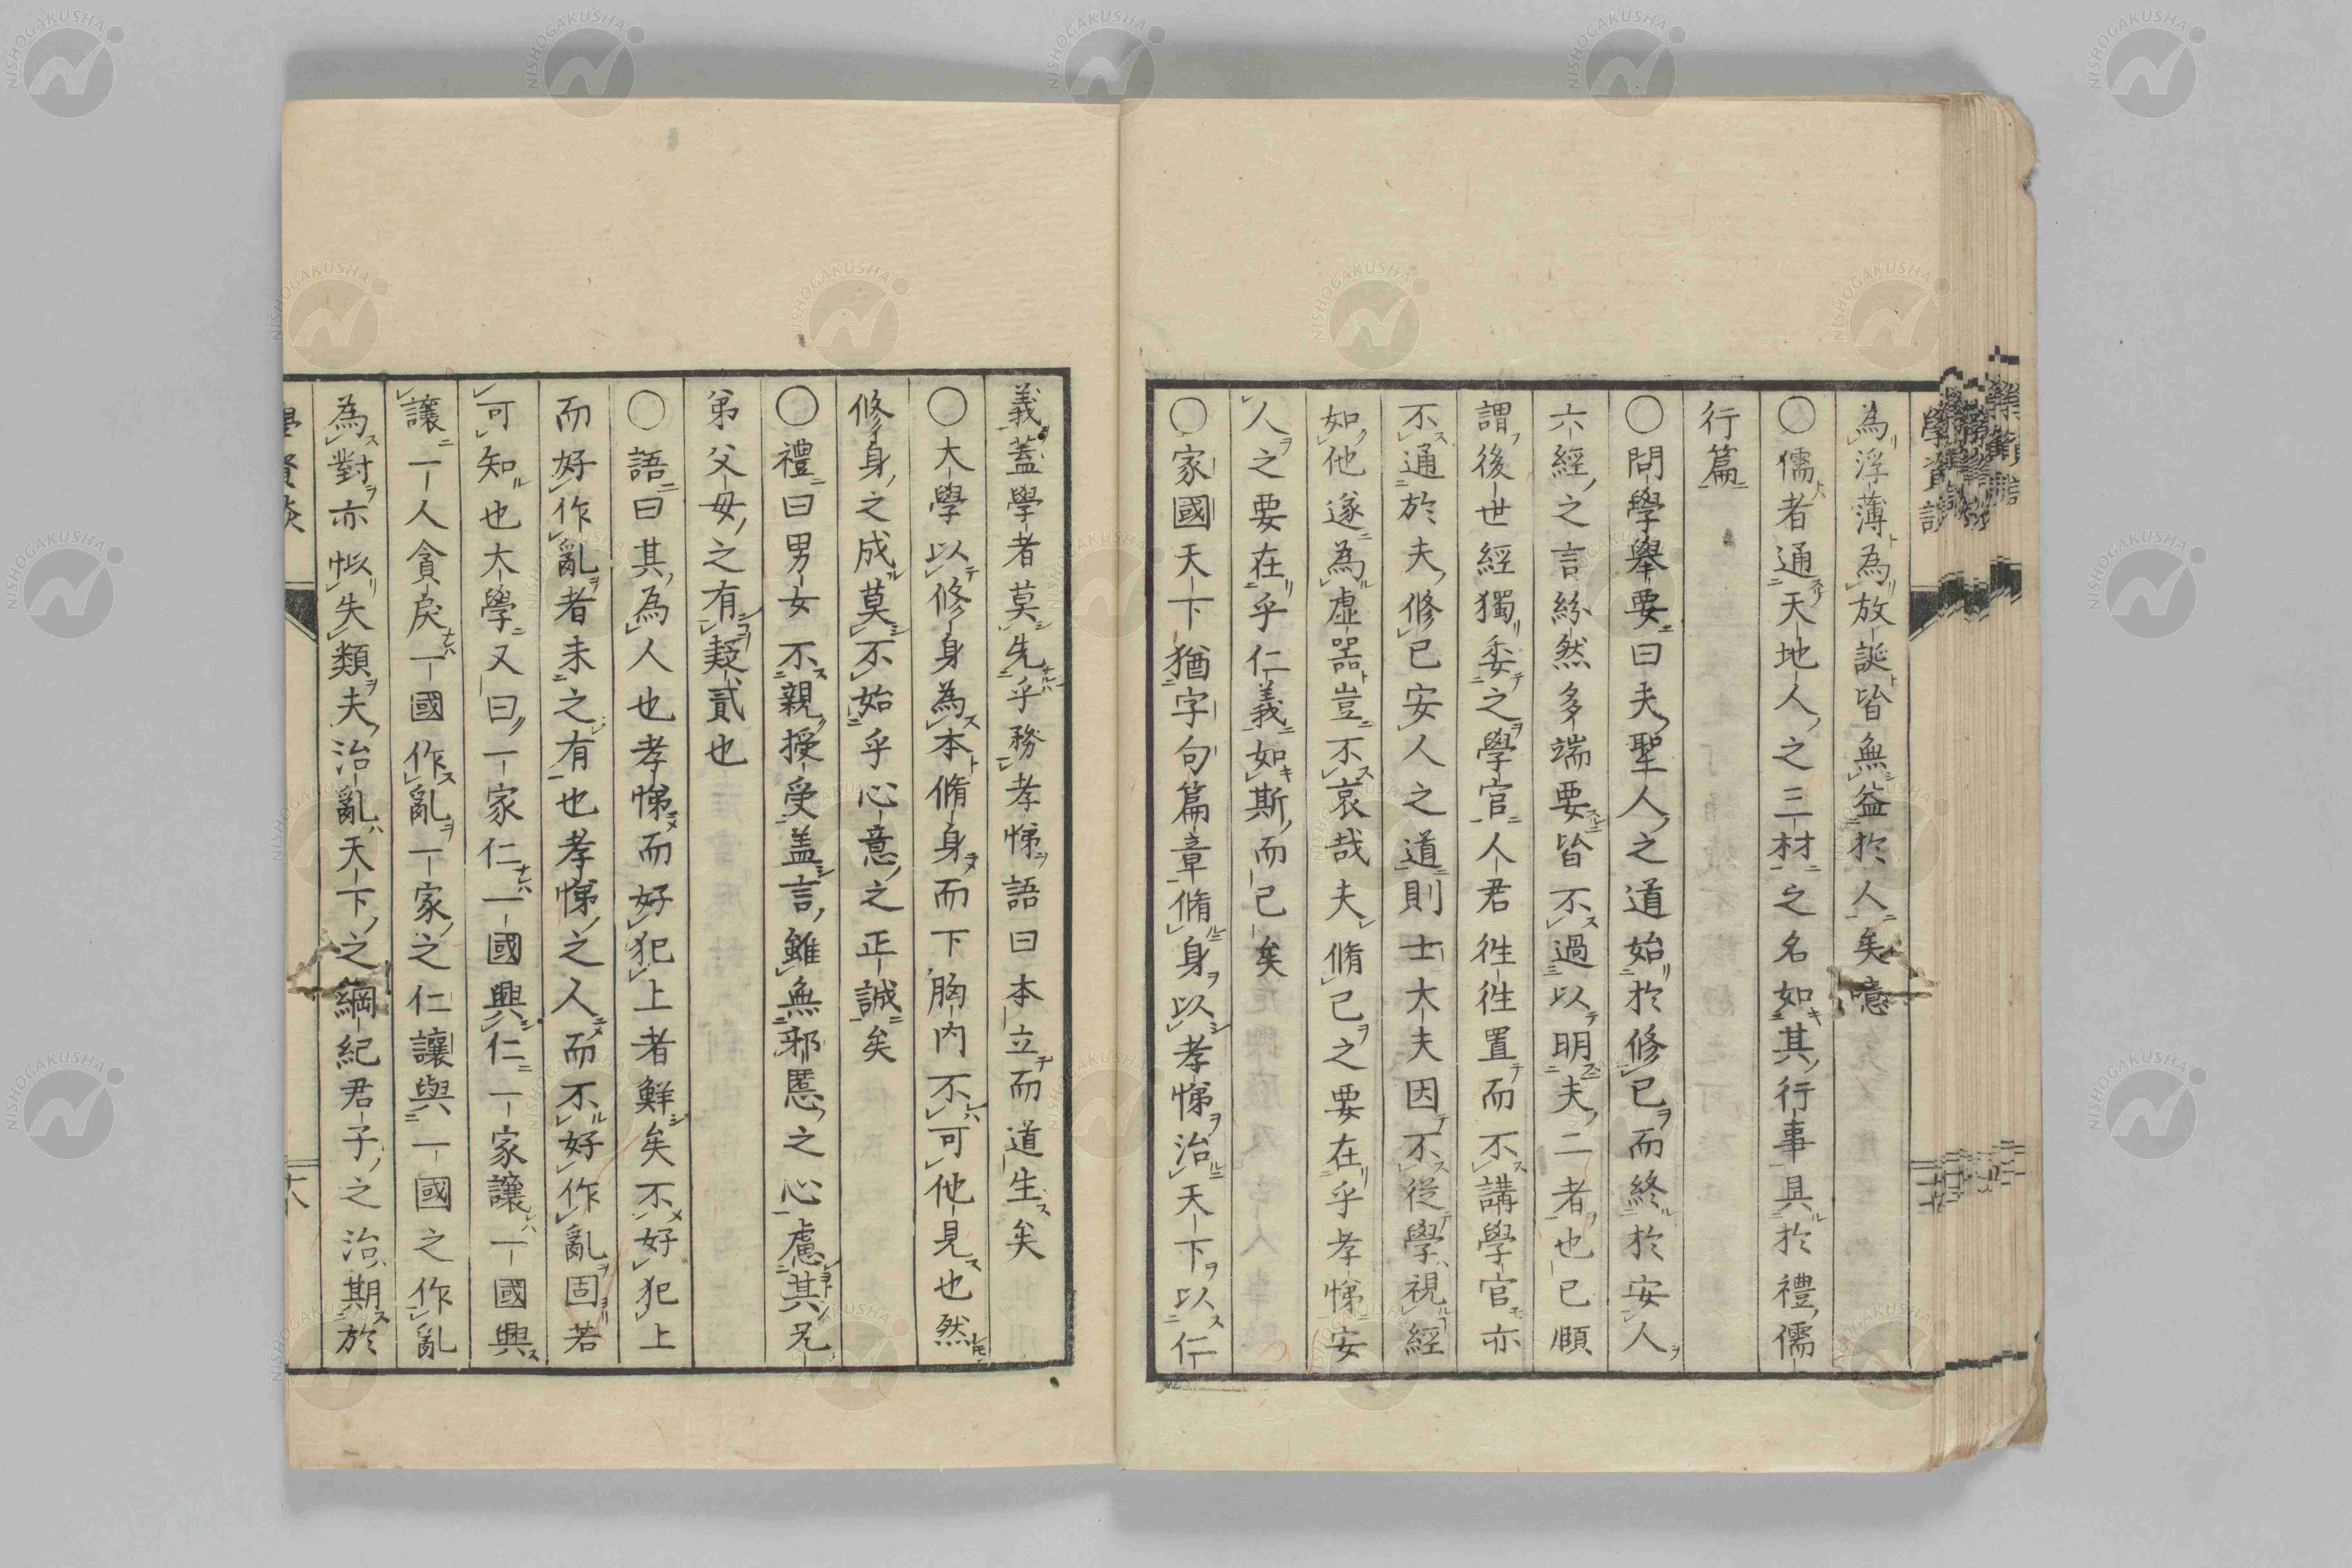 為浮薄為放誕皆無益於人矣噫
〇儒者通天地人之三材之名如其行事具於禮儒
行篇
〇問學舉要曰夫聖人之道始於修已而終於安人
六經之言紛然多端要皆不過以明夫二者也已顧
謂後世經獨委之學官人君徃徃置而不講學官亦
不通於夫修已安人之道則士大夫因不從學視經
如他遂為虛器豈不哀哉夫脩已之要在乎孝悌安
人之要在乎仁義如斯而已矣
〇家國天下猶字句篇章脩身以孝悌治天下以仁
義蓋學者莫先乎務孝悌語曰本立而道生矣
〇大學以修身為本脩身而下胸内不可他見也然
修身之成莫不始乎心意之正誠矣
〇禮曰男女不親授受盖言雖無邪慝之心慮其兄
弟父母之有疑貳也
〇語曰其為人也孝悌而好犯上者鮮矣不好犯上
而好作亂者未之有也孝悌之人而不好作亂固若
可知也大學又曰一家仁一國興仁一家讓一國興
讓一人貪戾一國作亂一家之仁讓與一國之作亂
為對亦似失類夫治亂天下之綱紀君子之治期於
學資談
十八
NISHOGAKUSHA